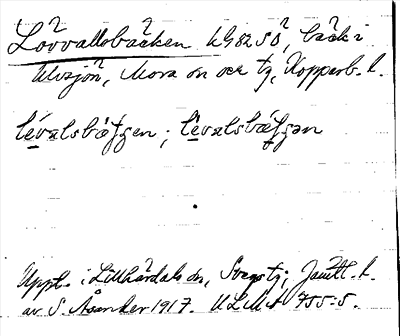 Lövvallsbäcken LG 82 SO, bäck i
Älvsjön, Mora sn och tg, Kopparb. l.
lèvalsbæken ; lèvalsbæken
Uppt. i Lillhärdals sn, Svegs tg, Jämtl. l.
av S. Åsenker 1917. ULMA 755:5.